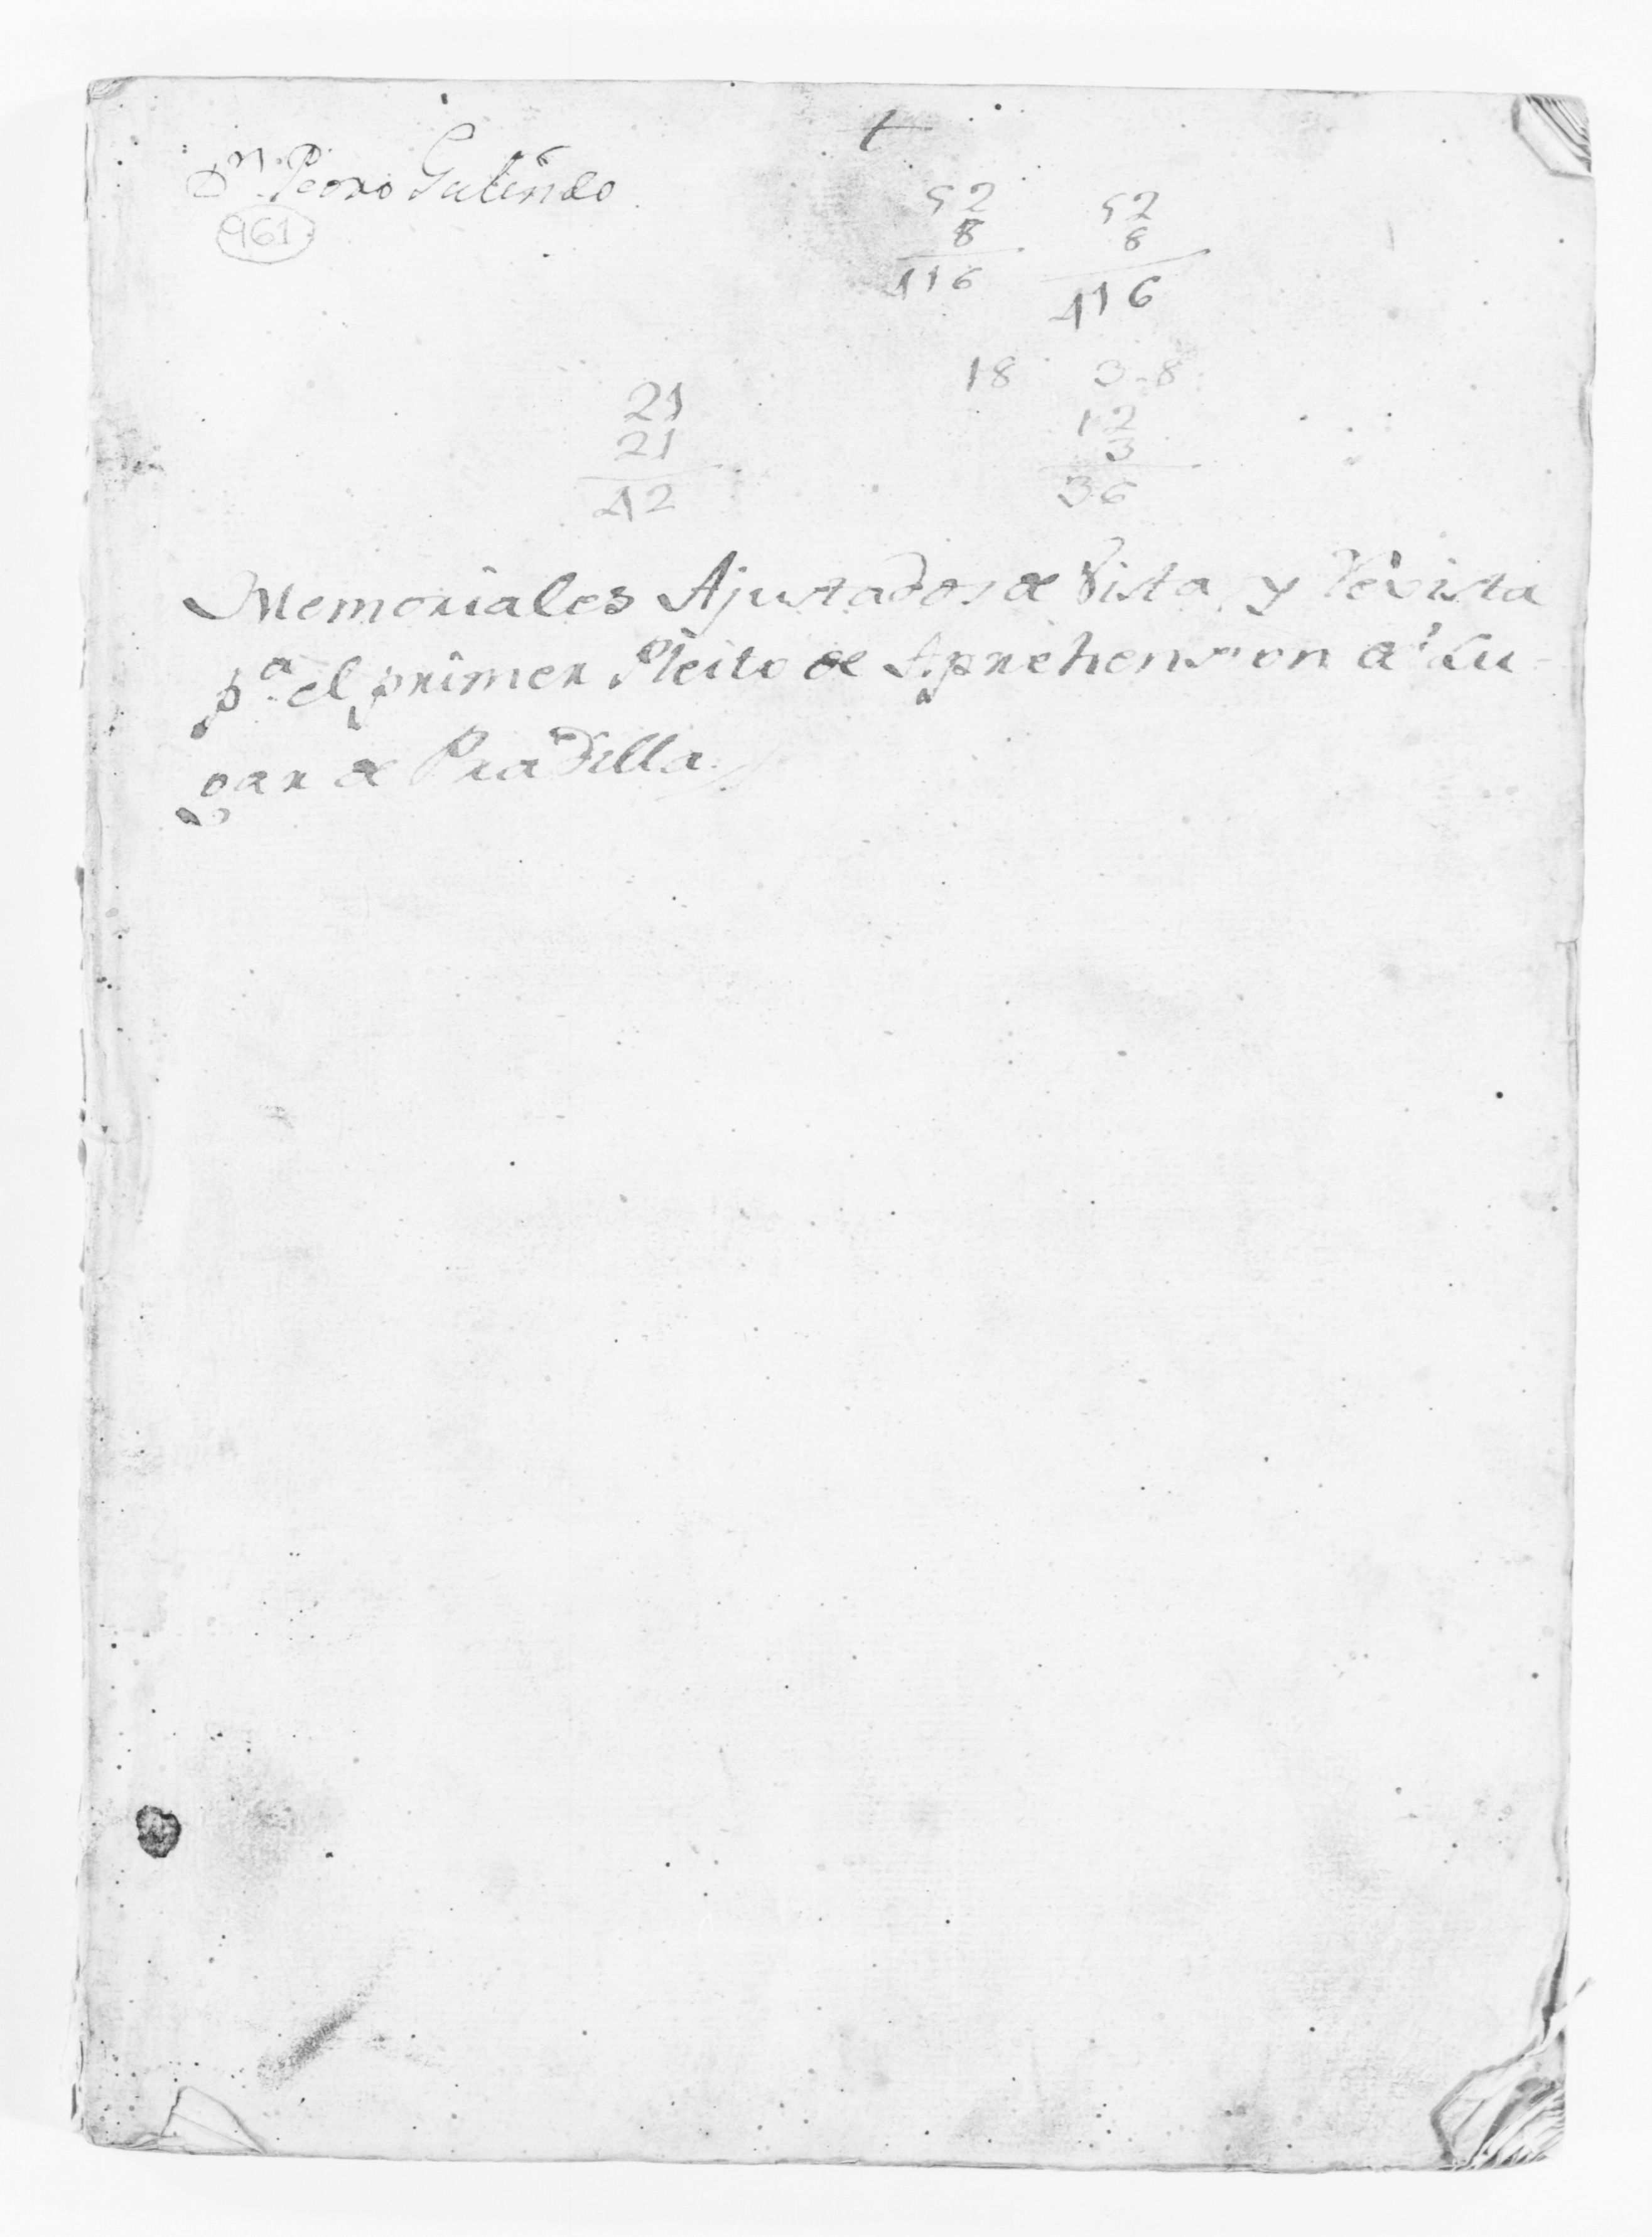 t
Dn. Pedro Galindo
961
52 52
8 8
416 416
18 3-8
21 12
21 3
42 36
Memoriales Ajustados de Vista, y Revista
pa. el primer Pleito de Aprehension del Lu-
gar de Pradilla.